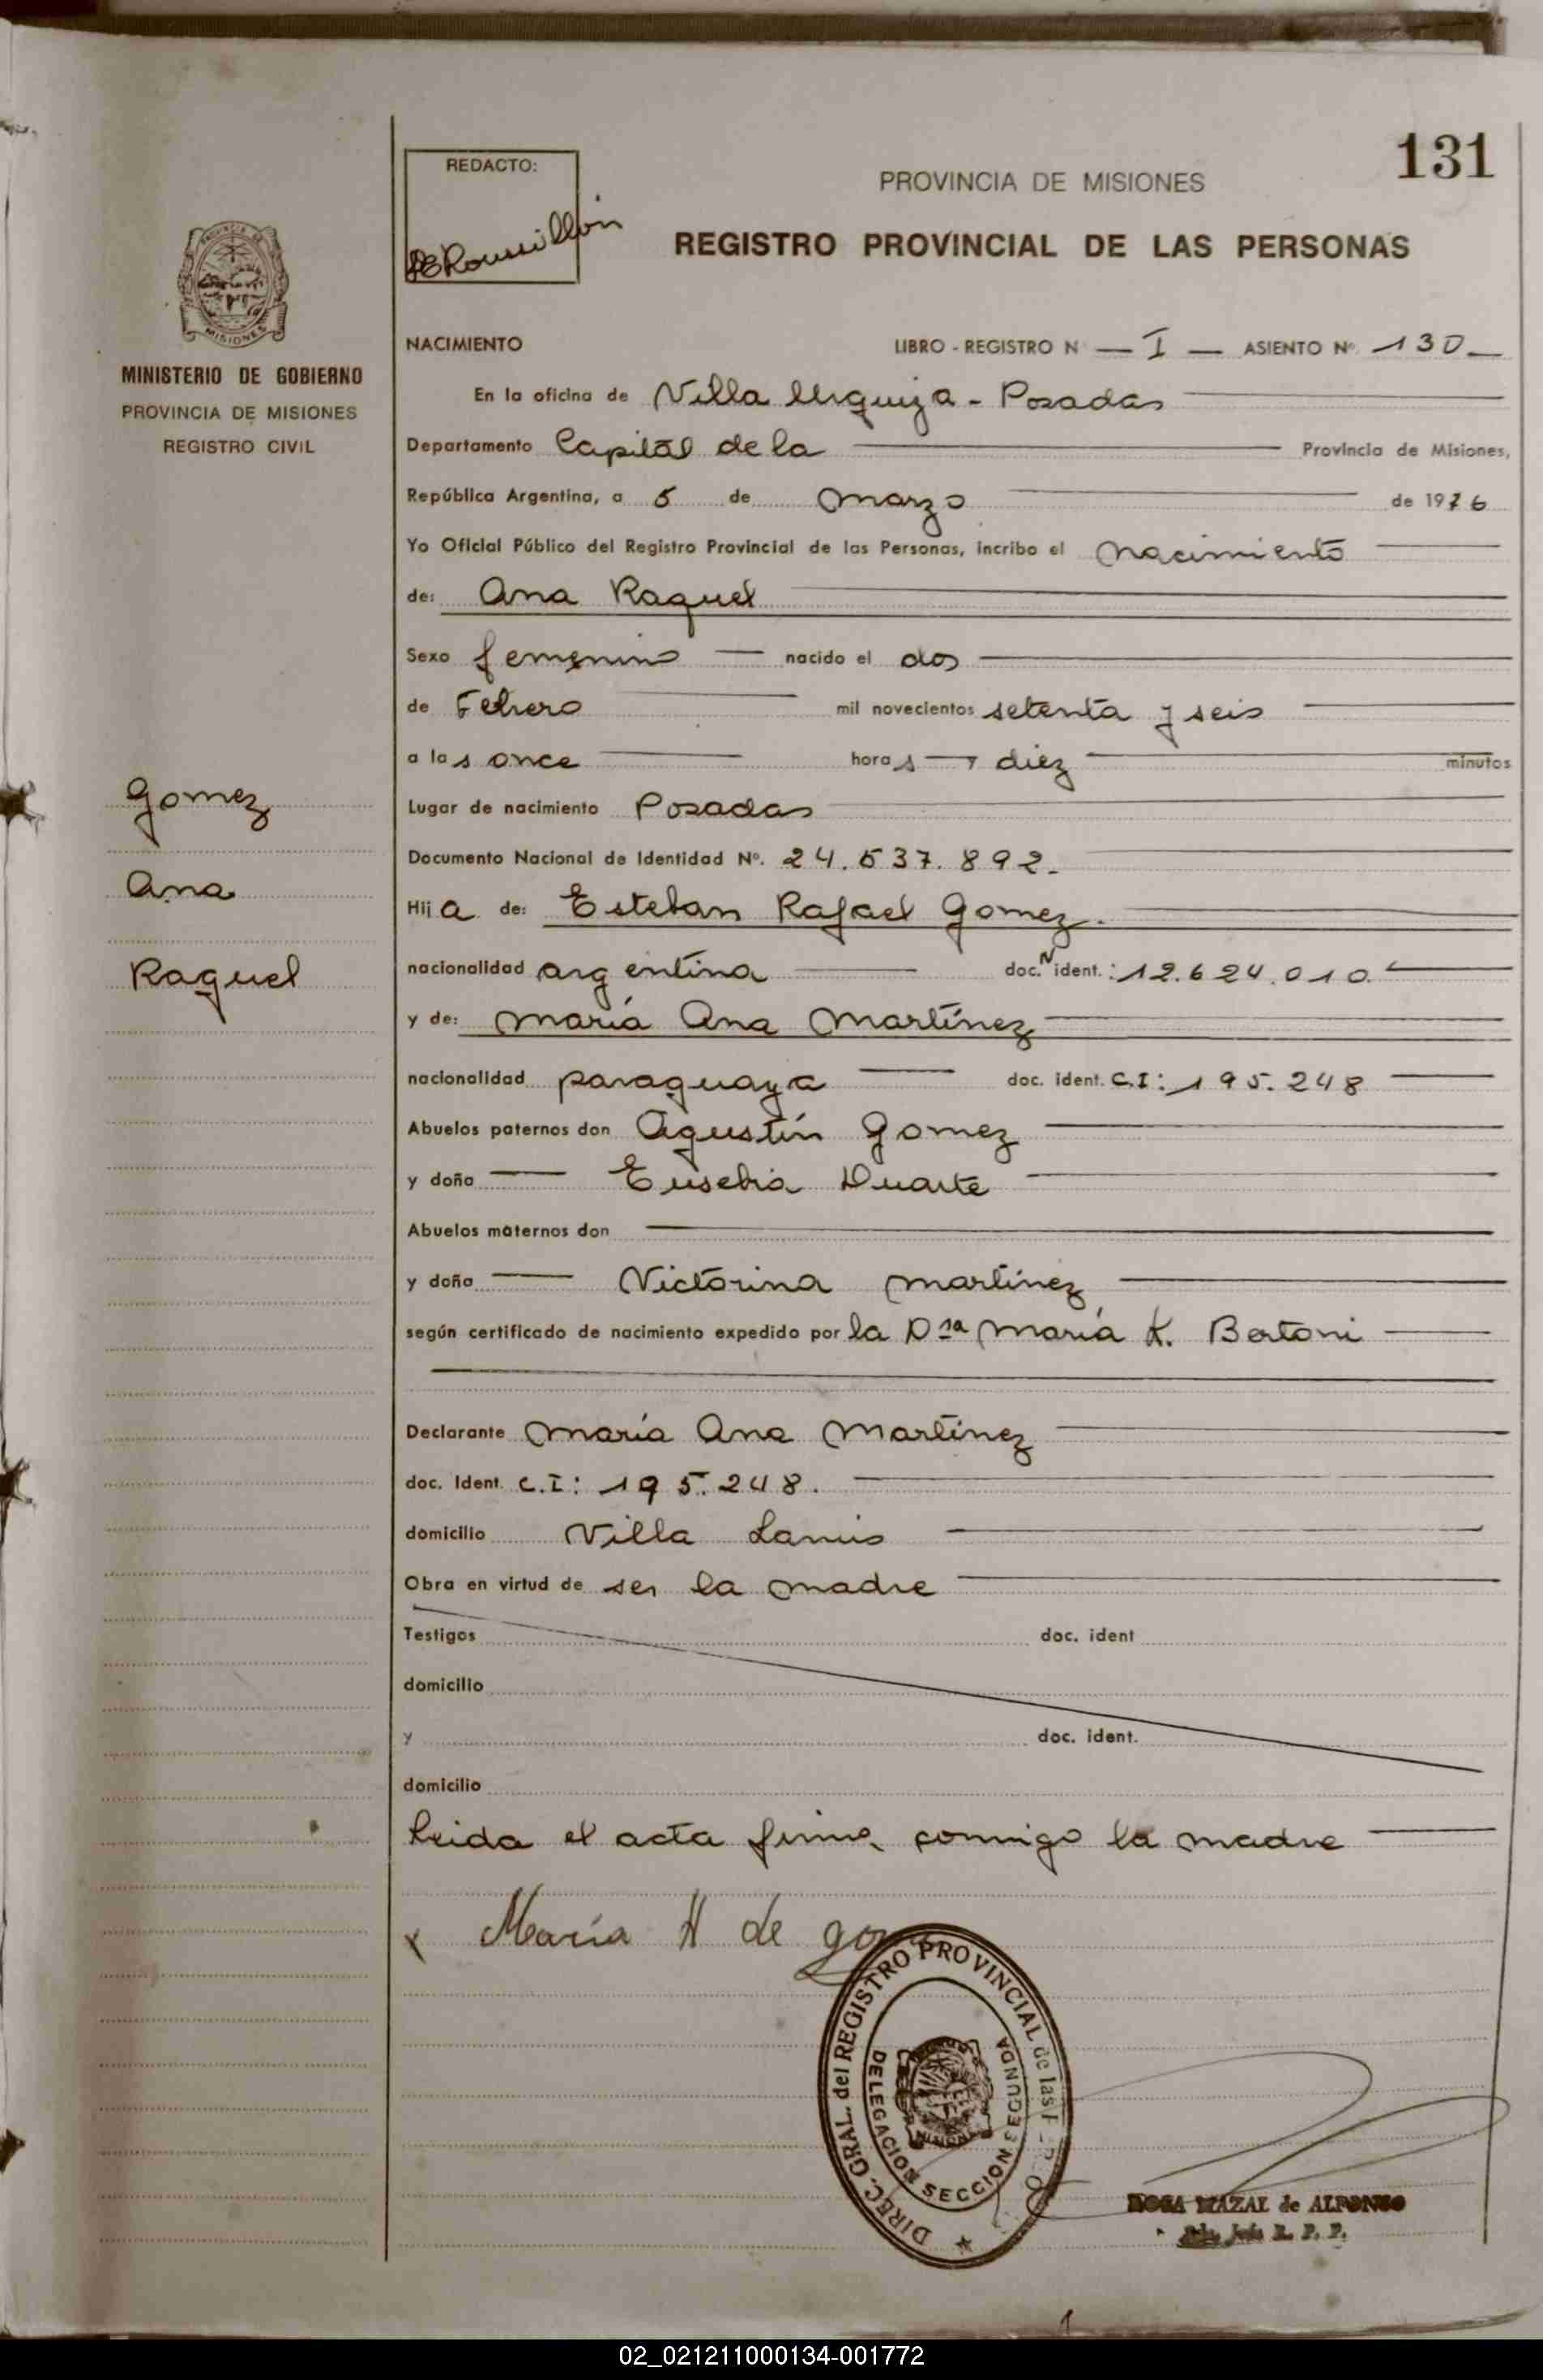 131
REDACTO:
PROVINCIA DE MISIONES
REGISTRO PROVINCIAL DE LAS PERSONAS
MISIONES
MINISTERIO DE GOBIERNO
PROVINCIA DE MISIONES
REGISTRO CIVIL
Gomez
Ana
Raquel
NACIMIENTO LIBRO - REGISTRO N — I — ASIENTO Nº 130
En la oficina de Villa Urquiza - Posadas
Departamento Capital de la Provincia de Misiones,
República Argentina, a 5 de marzo de 1976
Yo Oficial Público del Registro Provincial de las Personas, incribo el nacimiento
de: Ana Raquel
Sexo femenino nacido el dos
de Febrero mil novecientos setenta y seis
a las once horas y diez minutos
Lugar de nacimiento Posadas
Documento Nacional de Identidad Nº. 24.537.892.
Hija de: Esteban Rafael Gomez.
nacionalidad argentina doc. N ident.: 12.624.010.
y de: María Ana Martínez
nacionalidad paraguaya doc. ident. C.I: 195.248
Abuelos paternos don Agustín Gomez
y doña Eusebia Duarte
Abuelos maternos don
y doña Victorina Martínez
según certificado de nacimiento expedido por la Dra María K. Bertoni
Declarante María Ana Martínez
doc. Ident. C.I: 195.248.
domicilio Villa Lanus
Obra en virtud de ser la madre
Testigos doc. ident
domicilio
y doc. ident.
domicilio
Leida el acta firma conmigo la madre
x María H de
DIREC. GRAL. del REGISTRO PROVINCIAL de las
DELEGACION SECCION SEGUNDA
ROSA MAZAL de ALFONSO
02_021211000134-001772